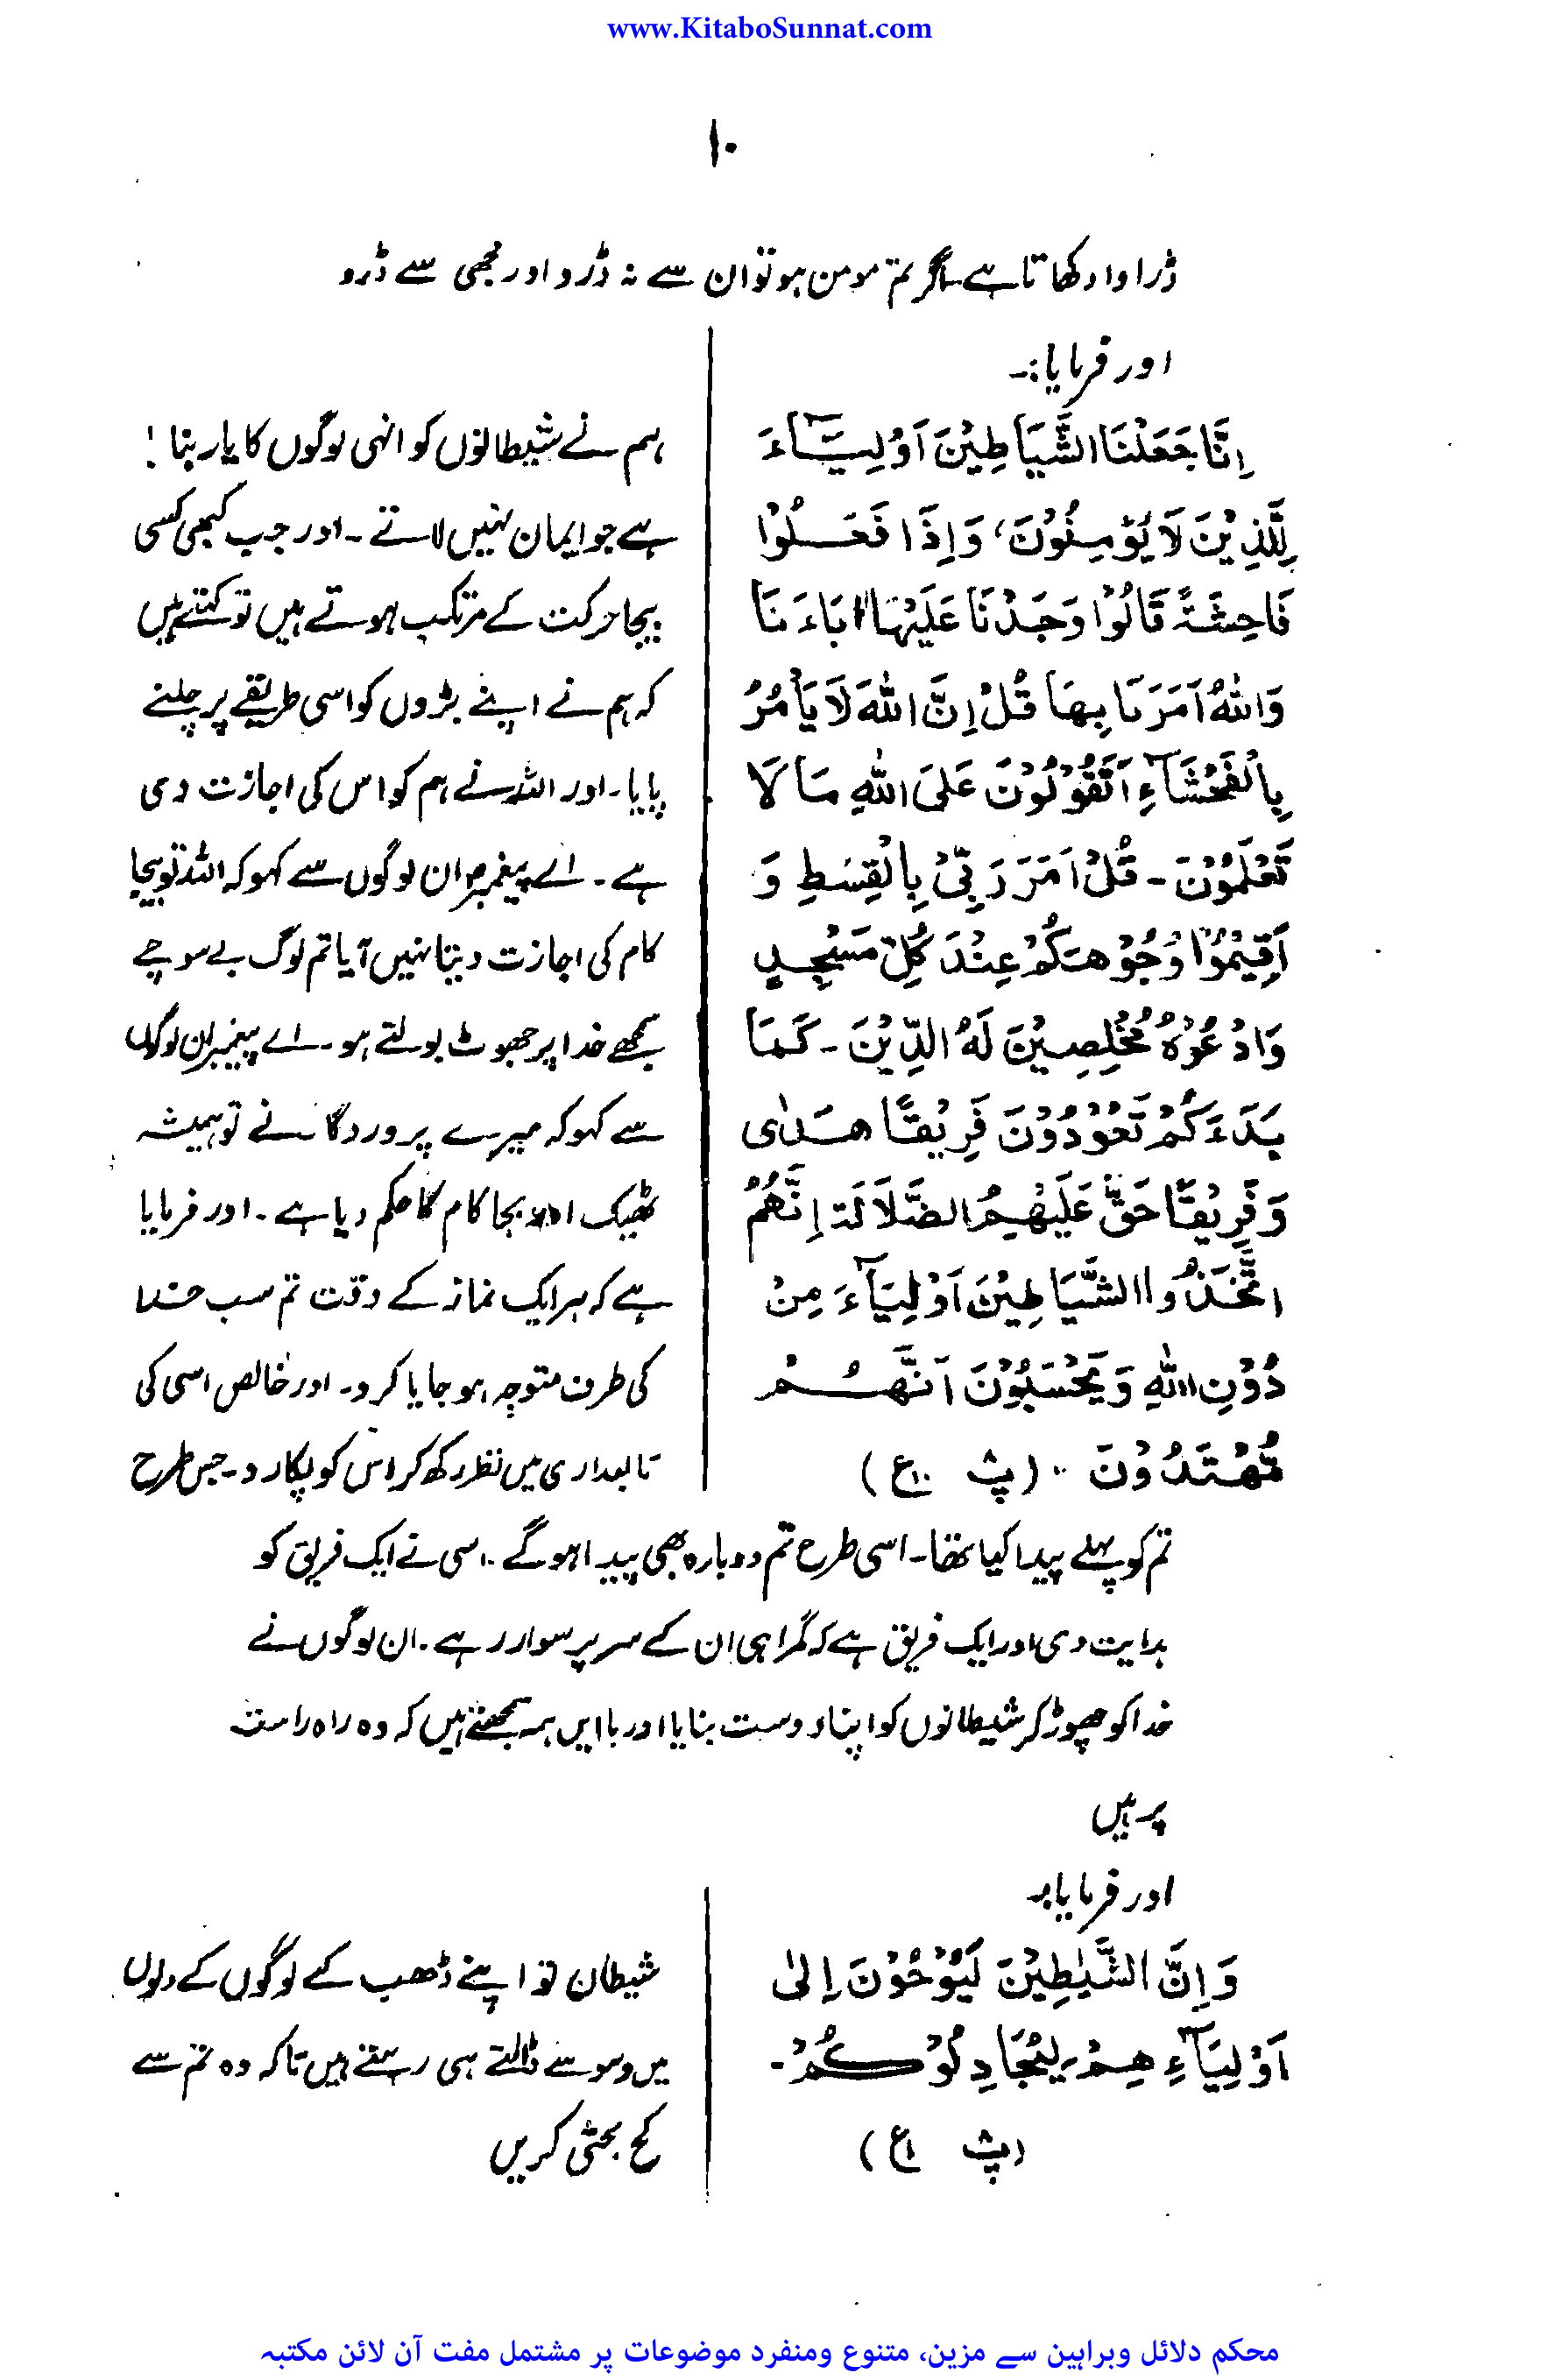 www.KitaboSunnat.com
۱۰
ڈراوا دکھاتا ہے۔ اگر تم مومن ہو تو ان سے نہ ڈرو اور مجھی سے ڈرو
اور فرمایا:۔
اِنَّا جَعَلْنَا الشَّيَاطِيْنَ اَوْلِيَآءَ
لِلَّذِيْنَ لَا يُؤْمِنُوْنَ، وَاِذَا فَعَلُوْا
فَاحِشَةً قَالُوْا وَجَدْنَا عَلَيْهَا اٰبَاءَنَا
وَاللّٰهُ اَمَرَنَا بِهَا قُلْ اِنَّ اللّٰهَ لَا يَاْمُرُ
بِالْفَحْشَآءِ اَتَقُوْلُوْنَ عَلَى اللّٰهِ مَا لَا
تَعْلَمُوْنَ ۔ قُلْ اَمَرَ رَبِّيْ بِالْقِسْطِ وَ
اَقِيْمُوْا وُجُوْهَكُمْ عِنْدَ كُلِّ مَسْجِدٍ
وَادْعُوْهُ مُخْلِصِيْنَ لَهُ الدِّيْنَ ۔ كَمَا
بَدَءَكُمْ تَعُوْدُوْنَ فَرِيْقًا هَدٰى
وَفَرِيْقًا حَقَّ عَلَيْهِمُ الضَّلَالَة اِنَّهُمُ
اتَّخَذُوا الشَّيَاطِيْنَ اَوْلِيَآءَ مِنْ
دُوْنِ اللّٰهِ وَيَحْسَبُوْنَ اَنَّهُمْ
مُّهْتَدُوْنَ ۔ (پ۸ ع۱۰)
ہم نے شیطانوں کو انہی لوگوں کا یار بنا!
ہے جو ایمان نہیں لاتے۔ اور جب کبھی کسی
بیجا حرکت کے مرتکب ہوتے ہیں تو کہتے ہیں
کہ ہم نے اپنے بڑوں کو اسی طریقے پر چلتے
پایا۔ اور اللہ نے ہم کو اس کی اجازت دی
ہے۔ اے پیغمبر ان لوگوں سے کہو کہ اللہ تو بیجا
کام کی اجازت دیتا نہیں آیا تم لوگ بے سوچے
سمجھے خدا پر جھوٹ بولتے ہو۔ اے پیغمبر ان لوگوں
سے کہو کہ میرے پروردگار نے تو ہمیشہ
ٹھیک اور بجا کام کا حکم دیا ہے۔ اور فرمایا
ہے کہ ہر ایک نماز کے وقت تم سب خدا
کی طرف متوجہ ہو جایا کرو۔ اور خالص اسی کی
تابعداری میں نظر رکھ کر اس کو پکارو۔ جس طرح
تم کو پہلے پیدا کیا تھا۔ اسی طرح تم دوبارہ بھی پیدا ہوگے۔ اسی نے ایک فریق کو
ہدایت دی اور ایک فریق ہے کہ گمراہی ان کے سر پر سوار رہے۔ ان لوگوں نے
خدا کو چھوڑ کر شیطانوں کو اپنا دوست بنایا اور بایں ہمہ سمجھتے ہیں کہ وہ راہ راست
پر ہیں
اور فرمایا:۔
وَاِنَّ الشَّيٰطِيْنَ لَيُوْحُوْنَ اِلٰى
اَوْلِيَآءِهِمْ لِيُجَادِلُوْكُمْ ۔
(پ۸ ع۱)
شیطان تو اپنے ڈھب کے لوگوں کے دلوں
میں وسوسے ڈالتے ہی رہتے ہیں تاکہ وہ تم سے
کج بحثی کریں
محکم دلائل وبراہین سے مزین، متنوع ومنفرد موضوعات پر مشتمل مفت آن لائن مکتبہ